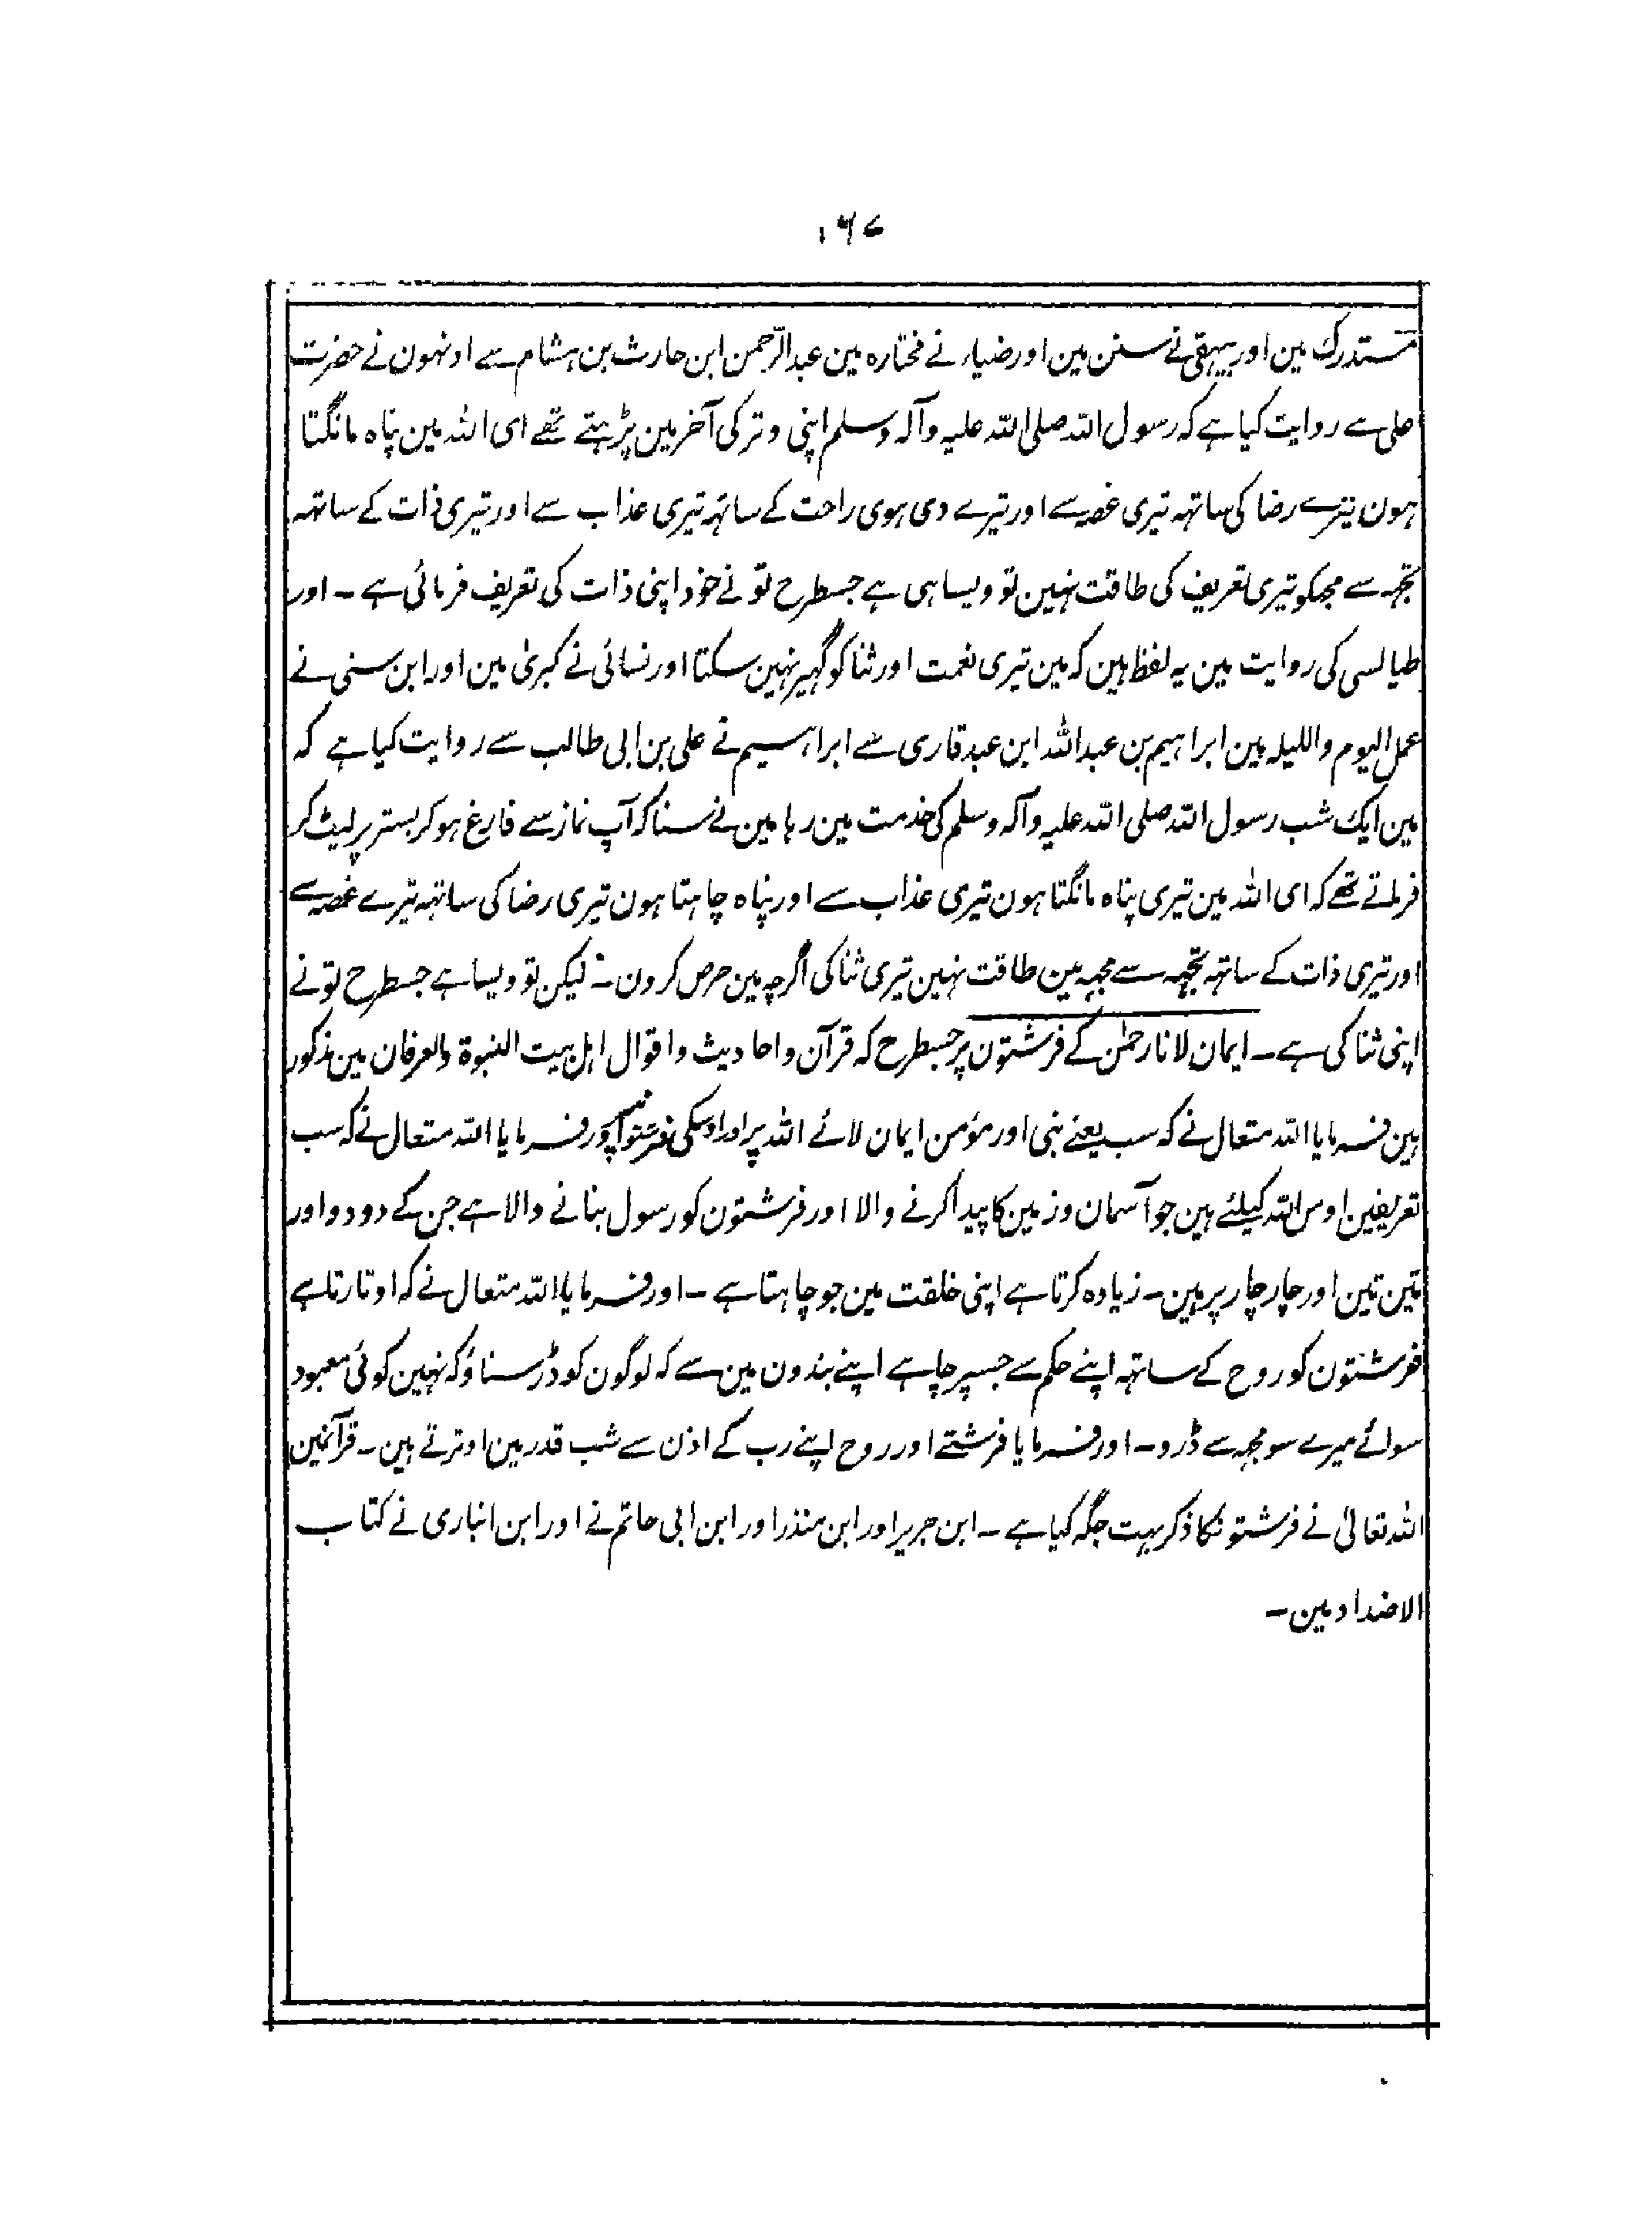 ۱۶۷
مستدرک مین اور بیہقی نے سنن مین اور ضیاء نے مختارہ مین عبدالرحمن ابن حارث بن ہشام سے اونہون نے حضرت
علی سے روایت کیا ہے کہ رسول اللہ صلی اللہ علیہ وآلہ وسلم اپنی وتر کی آخر مین پڑہتے تھے ای اللہ مین پناہ مانگتا
ہون تیرے رضا کی ساتہہ تیری غصہ سے اور تیرے دی ہوی راحت کے ساتہہ تیری عذاب سے اور تیری ذات کے ساتہہ
تجہہ سے مجہکو تیری تعریف کی طاقت نہین تو ویسا ہی ہے جسطرح تو نے خود اپنی ذات کی تعریف فرمائی ہے ۔ اور
طیالسی کی روایت مین یہ لفظ ہین کہ مین تیری نعمت اور ثنا کو گہیر نہین سکتا اور نسائی نے کبریٰ مین اور ابن سنی نے
عمل الیوم واللیلہ مین ابراہیم بن عبداللہ ابن عبد قاری سے ابراہسیم نے علی بن ابی طالب سے روایت کیا ہے کہ
مین ایک شب رسول اللہ صلی اللہ علیہ وآلہ وسلم کی خدمت مین رہا مین نے سنا کہ آپ نماز سے فارغ ہوکر بستر پر لیٹ کر
فرماتے تھے کہ ای اللہ مین تیری پناہ مانگتا ہون تیری عذاب سے اور پناہ چاہتا ہون تیری رضا کی ساتہہ تیرے غصہ سے
اور تیری ذات کے ساتہہ تجہہ سے مجہہ مین طاقت نہین تیری ثنا کی اگرچہ مین حرص کرون ۔ لیکن تو ویسا ہے جسطرح تو نے
اپنی ثنا کی ہے ۔ ایمان لانا رحمٰن کے فرشتون پر جسطرح کہ قرآن واحادیث واقوال اہل بیت النبوۃ والعرفان مین مذکور
ہین فرمایا اللہ متعال نے کہ سب یعنے نبی اور مؤمن ایمان لائے اللہ پر اور اوسکی فرشتو اور فرمایا اللہ متعال نے کہ سب
تعریفین اوس اللہ کیلئے ہین جو آسمان وزمین کا پیدا کرنے والا اور فرشتون کو رسول بنانے والا ہے جن کے دو دو اور
تین تین اور چار چار پر ہین ۔ زیادہ کرتا ہے اپنی خلقت مین جو چاہتا ہے ۔ اور فرمایا اللہ متعال نے کہ اوتارتا ہے
فرشتون کو روح کے ساتہہ اپنے حکم سے جسپر چاہے اپنے بندون مین سے کہ لوگون کو ڈر سناؤ کہ نہین کوئی معبود
سوائے میرے سو مجہہ سے ڈرو ۔ اور فرمایا فرشتے اور روح اپنے رب کے اذن سے شب قدر مین اوترتے ہین ۔ قرآنمین
اللہ تعالیٰ نے فرشتونکا ذکر بہت جگہ کیا ہے ۔ ابن جریر اور ابن منذر اور ابن ابی حاتم نے اور ابن انباری نے کتاب
الاضداد مین ۔